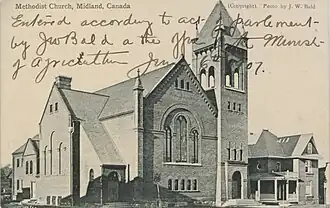 Methodist Church, Midland, Canada
(Copyright). Photo by J. W. Bald
Entered according to act Parlement
by JW Bald at the
of Agriculture June 07.